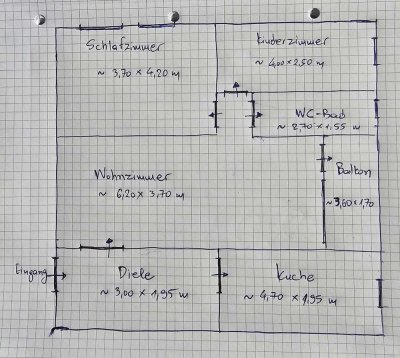 Schlafzimmer
~ 3,70 x 4,20 m
Kinderzimmer
~ 4,00 x 2,50 m
WC-Bad
~ 2,70 x 1.55 m
Wohnzimmer
~ 6,20 x 3,70 m
Balkon
~3,60 x 1,70
Eingang
Diele
~ 3,00 x 1,95 m
Küche
~ 4,70 x 1,95 m